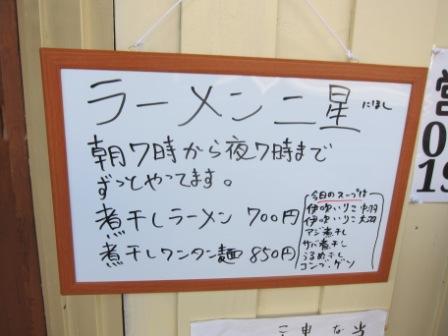 ラーメン二星 にぼし
朝7時から夜7時まで
ずっとやってます。
煮干しラーメン 700円
煮干しワンタン麺 850円
今日のスープは
伊吹いりこ 中羽
伊吹いりこ 大羽
アジ煮干し
サバ煮干し
うるめ干し
コンブ・ゲソ
営